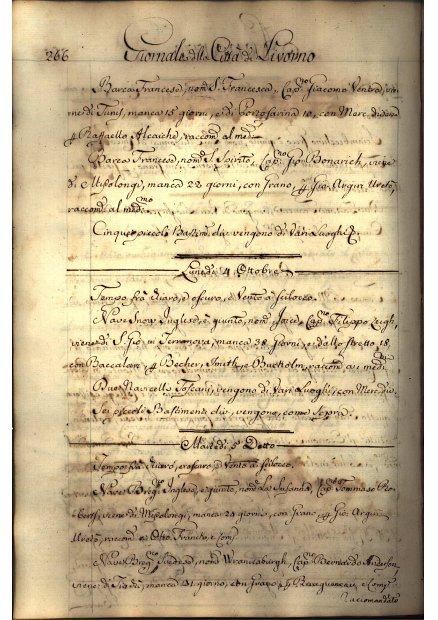 266 Giornale della Città di Livorno
Barca Francese, nom. S. Francesco, Cap.no Giacomo Ventre, viene
di Tunis, manca 15 giorni, e di Portofarina 10, con Merc. div.
Raffaello Alcaiche, raccom. al med.mo
Barca Francese, nom. S. Spirito, Cap.no Gio. Bonarich, viene
di Missolongi, manca 22 giorni, con Grano, Gio. Arguì
raccom. al med.mo
Cinque piccoli Bastim. che vengono di Vari Luoghi
Lunedì 4 Ottobre
Tempo frà chiaro, e oscuro, e Vento a scilocco.
Nave Snow Inglese, è giunto, nom. Joice, Cap.no Filippo
viene di S. Gio. in Terranova, manca 38 Giorni, e dallo stretto 18,
con Baccalari, Becher, Smith, e Burtholm, raccom. a i med.
Due Navicello Toscani, vengono di Vari Luoghi, con Merc. div.
Sei piccoli Bastimenti che vengono, come Sopra.
Martedì 5 Detto
Tempo frà chiaro, e oscuro, e Vento a scilocco.
Nave Brig.no Inglese, è giunto, nom. La Susanna, Cap.no Tommaso
viene di Missolongi, manca 24 giorni, con Grano, Gio. Arguì
raccom. a Otto Francho, e Comp.
Nave Brig.no Svedese, nom. Wraniesburgh, Cap.no Bernardo Anderson,
viene di manca 31 giorni, con Grano, e Comp.
Raccomandato